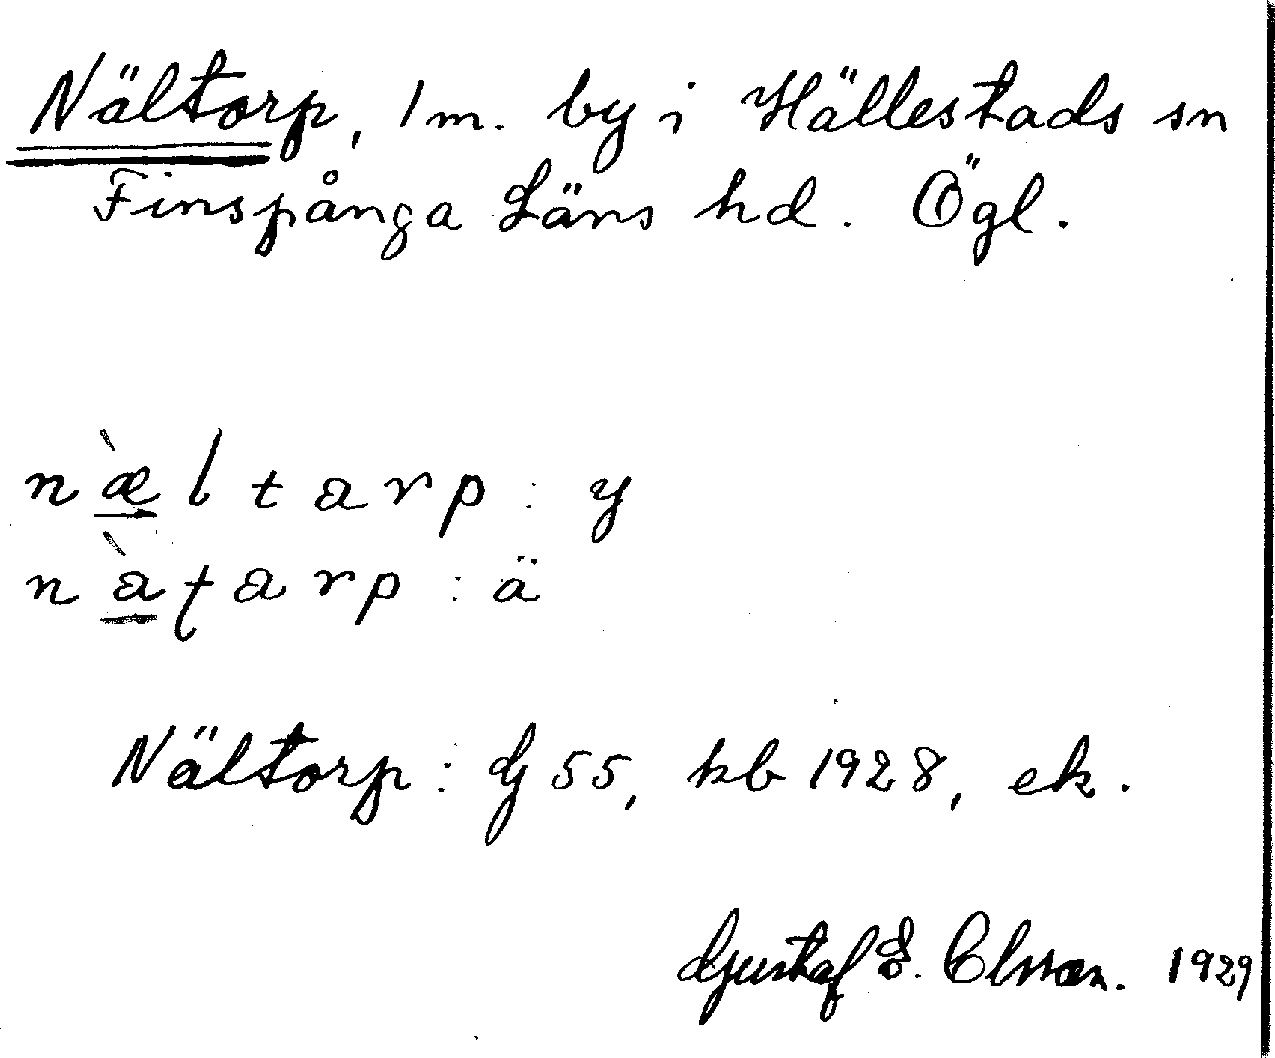 Nältorp, 1 m. by i Hällestads sn
Finspånga Läns hd. Ögl.
næ̀ltarp : y
nàƭarp : ä
Nältorp : G 55, kb 1928, ek.
Gustaf E. Olsson. 1929